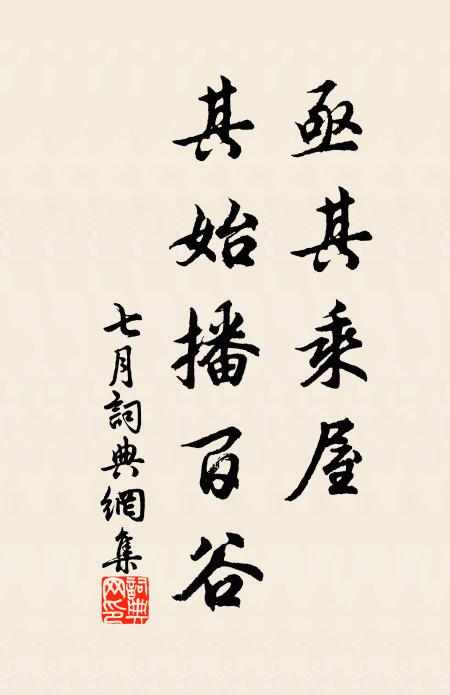 亟其乘屋
其始播百谷
七月詞典網集
詞典网印